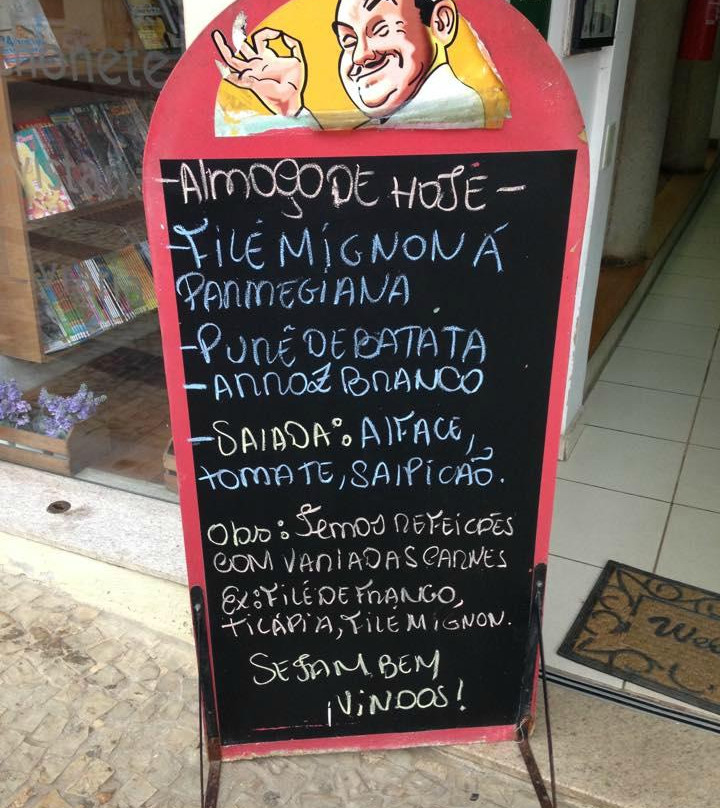 moñete
- ALMOÇO DE HOJE -
- FILÉ MIGNON Á
PARMEGIANA
- PURÊ DE BATATA
- ARROZ BRANCO
- SALADA: ALFACE,
TOMATE, SALPICÃO.
Obs: TEMOS REFEIÇÕES
COM VARIADAS CARNES
Ex: FILÉ DE FRANGO,
TILÁPIA, FILE MIGNON.
SEJAM BEM
¡VINDOS!
Wel